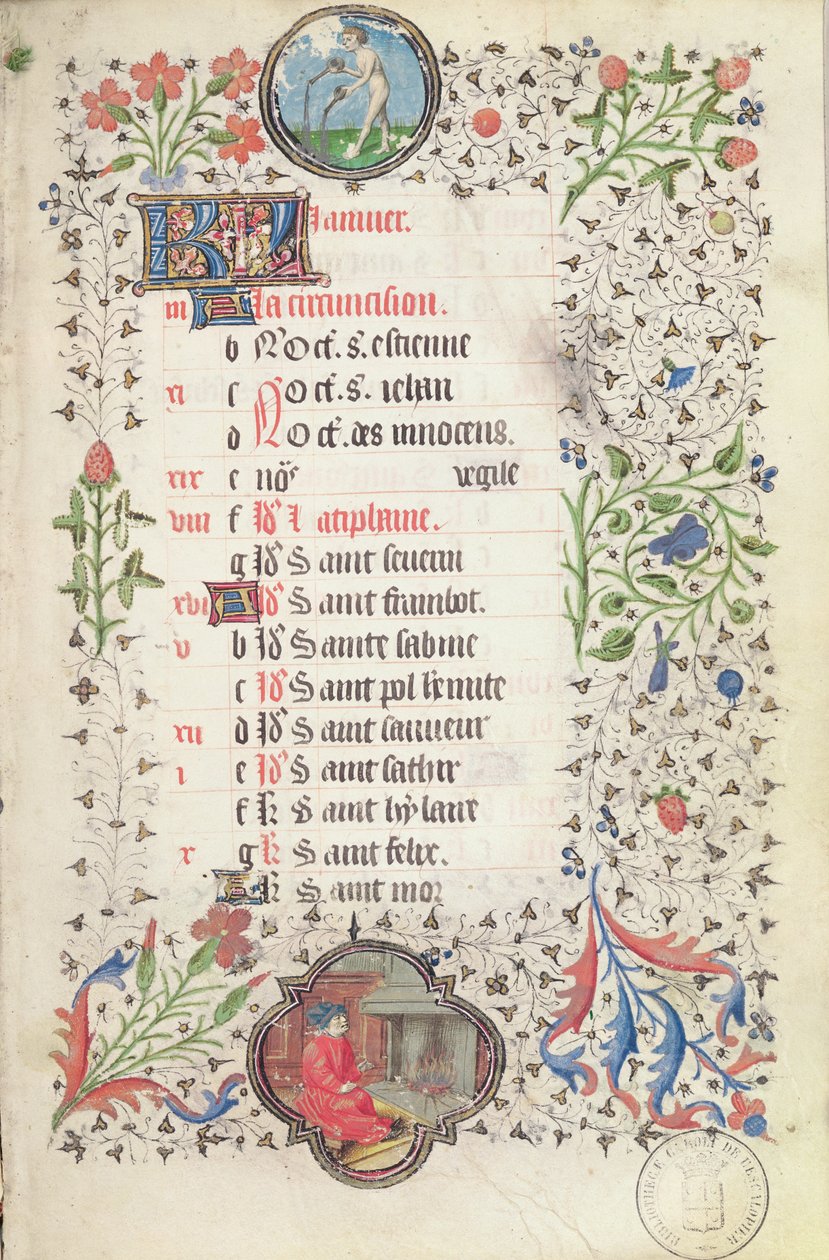 KL Januier.
iii A La circuncision.
b Noct. s. estienne
xi c Noct. s. iehan
d Noct. des innocens.
xix e noſ vegile
viii f Id La tiphaine.
g Id Saint seuerin
xvi A Id Saint frambot.
v b Id Sainte sabine
c Id Saint pol hermite
xii d Id Saint sauueur
i e Id Saint satир
f k Saint hylaire
x g k Saint felix.
A k Saint mor
BIBLIOTHECÆ CAROLI DE L'ESCALOPIER